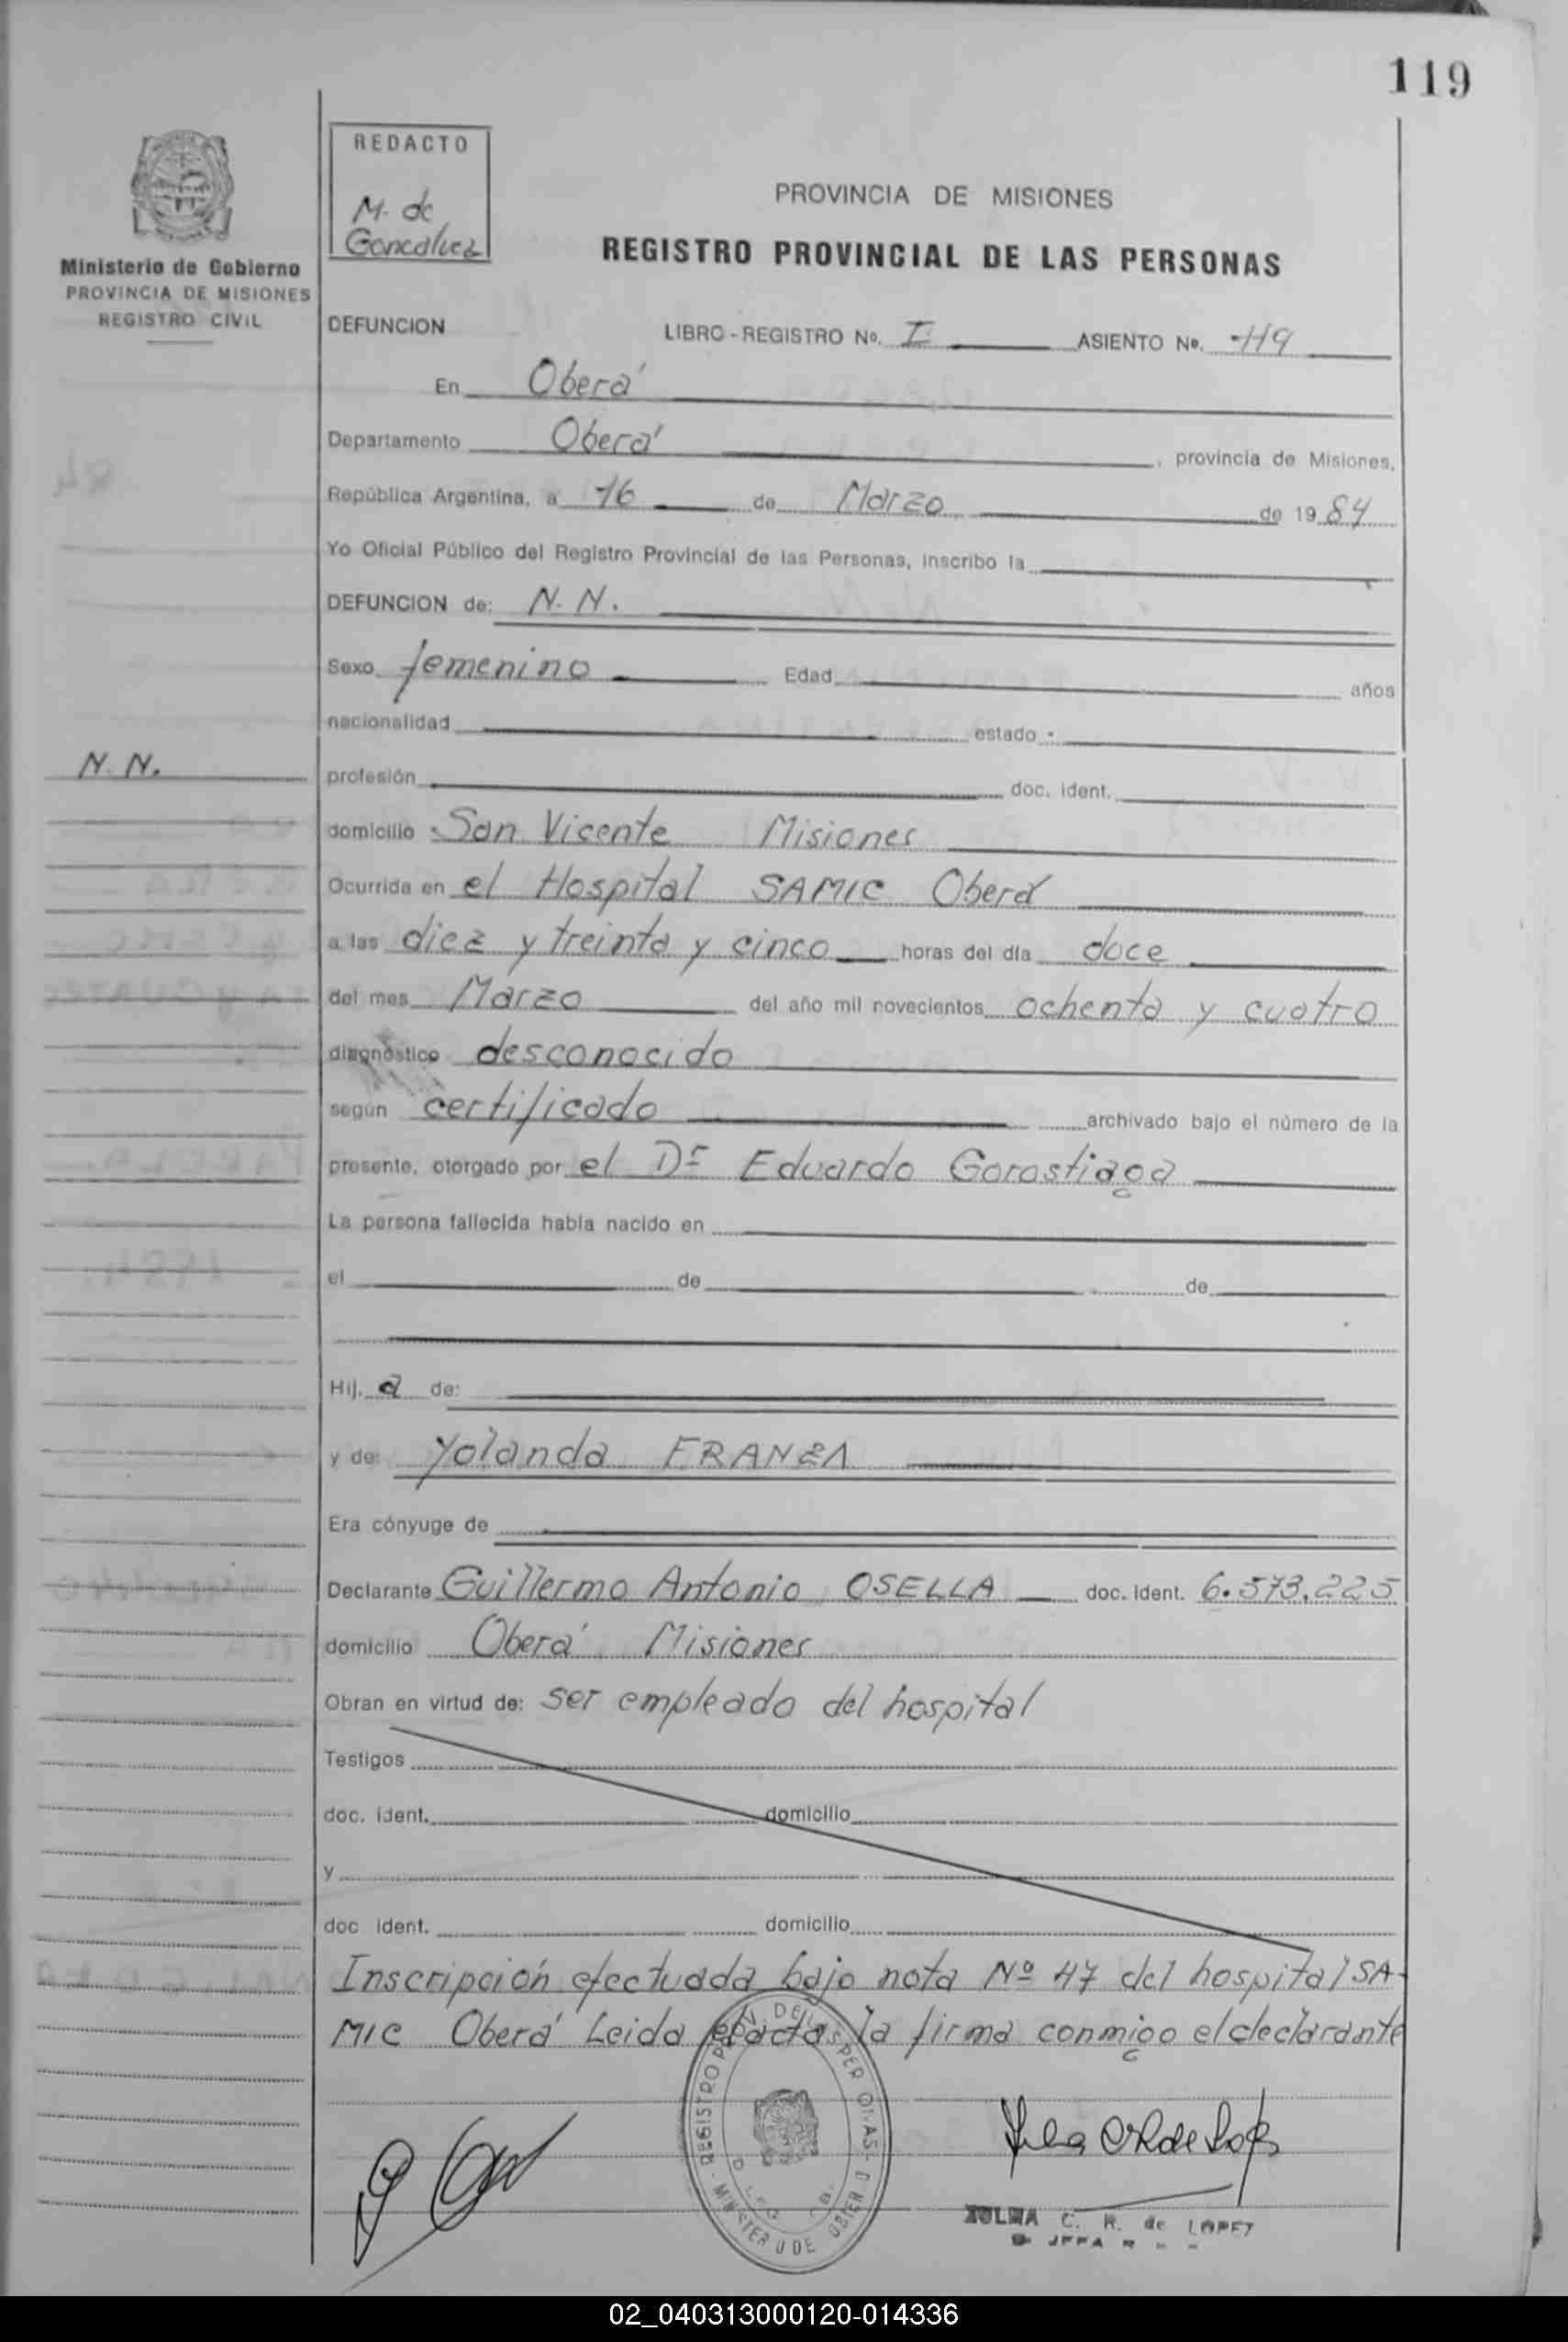 119
REDACTO
M. de
Goncalvez
Ministerio de Gobierno
PROVINCIA DE MISIONES
REGISTRO CIVIL
PROVINCIA DE MISIONES
REGISTRO PROVINCIAL DE LAS PERSONAS
DEFUNCION LIBRO-REGISTRO No. I ASIENTO No. 119
En Oberá
Departamento Oberá, provincia de Misiones,
República Argentina, a 16 de Marzo de 1984
Yo Oficial Público del Registro Provincial de las Personas, inscribo la
DEFUNCION de: N. N.
Sexo femenino Edad años
nacionalidad estado
N. N.
profesión doc. ident.
domicilio San Vicente Misiones
Ocurrida en el Hospital SAMIC Oberá
a las diez y treinta y cinco horas del día doce
del mes Marzo del año mil novecientos ochenta y cuatro
diagnóstico desconocido
según certificado archivado bajo el número de la
presente, otorgado por el Dr Eduardo Gorostiaga
La persona fallecida había nacido en
el de de
Hij. a de:
y de: Yolanda FRANZA
Era cónyuge de
Declarante Guillermo Antonio OSELLA doc. ident. 6.573.225
domicilio Oberá Misiones
Obran en virtud de: ser empleado del hospital
Testigos
doc. ident. domicilio
y
doc ident. domicilio
Inscripción efectuada bajo nota Nº 47 del hospital SA-
MIC Oberá Leida el acta la firma conmigo el declarante
C. R. de LOPEZ
02_040313000120-014336